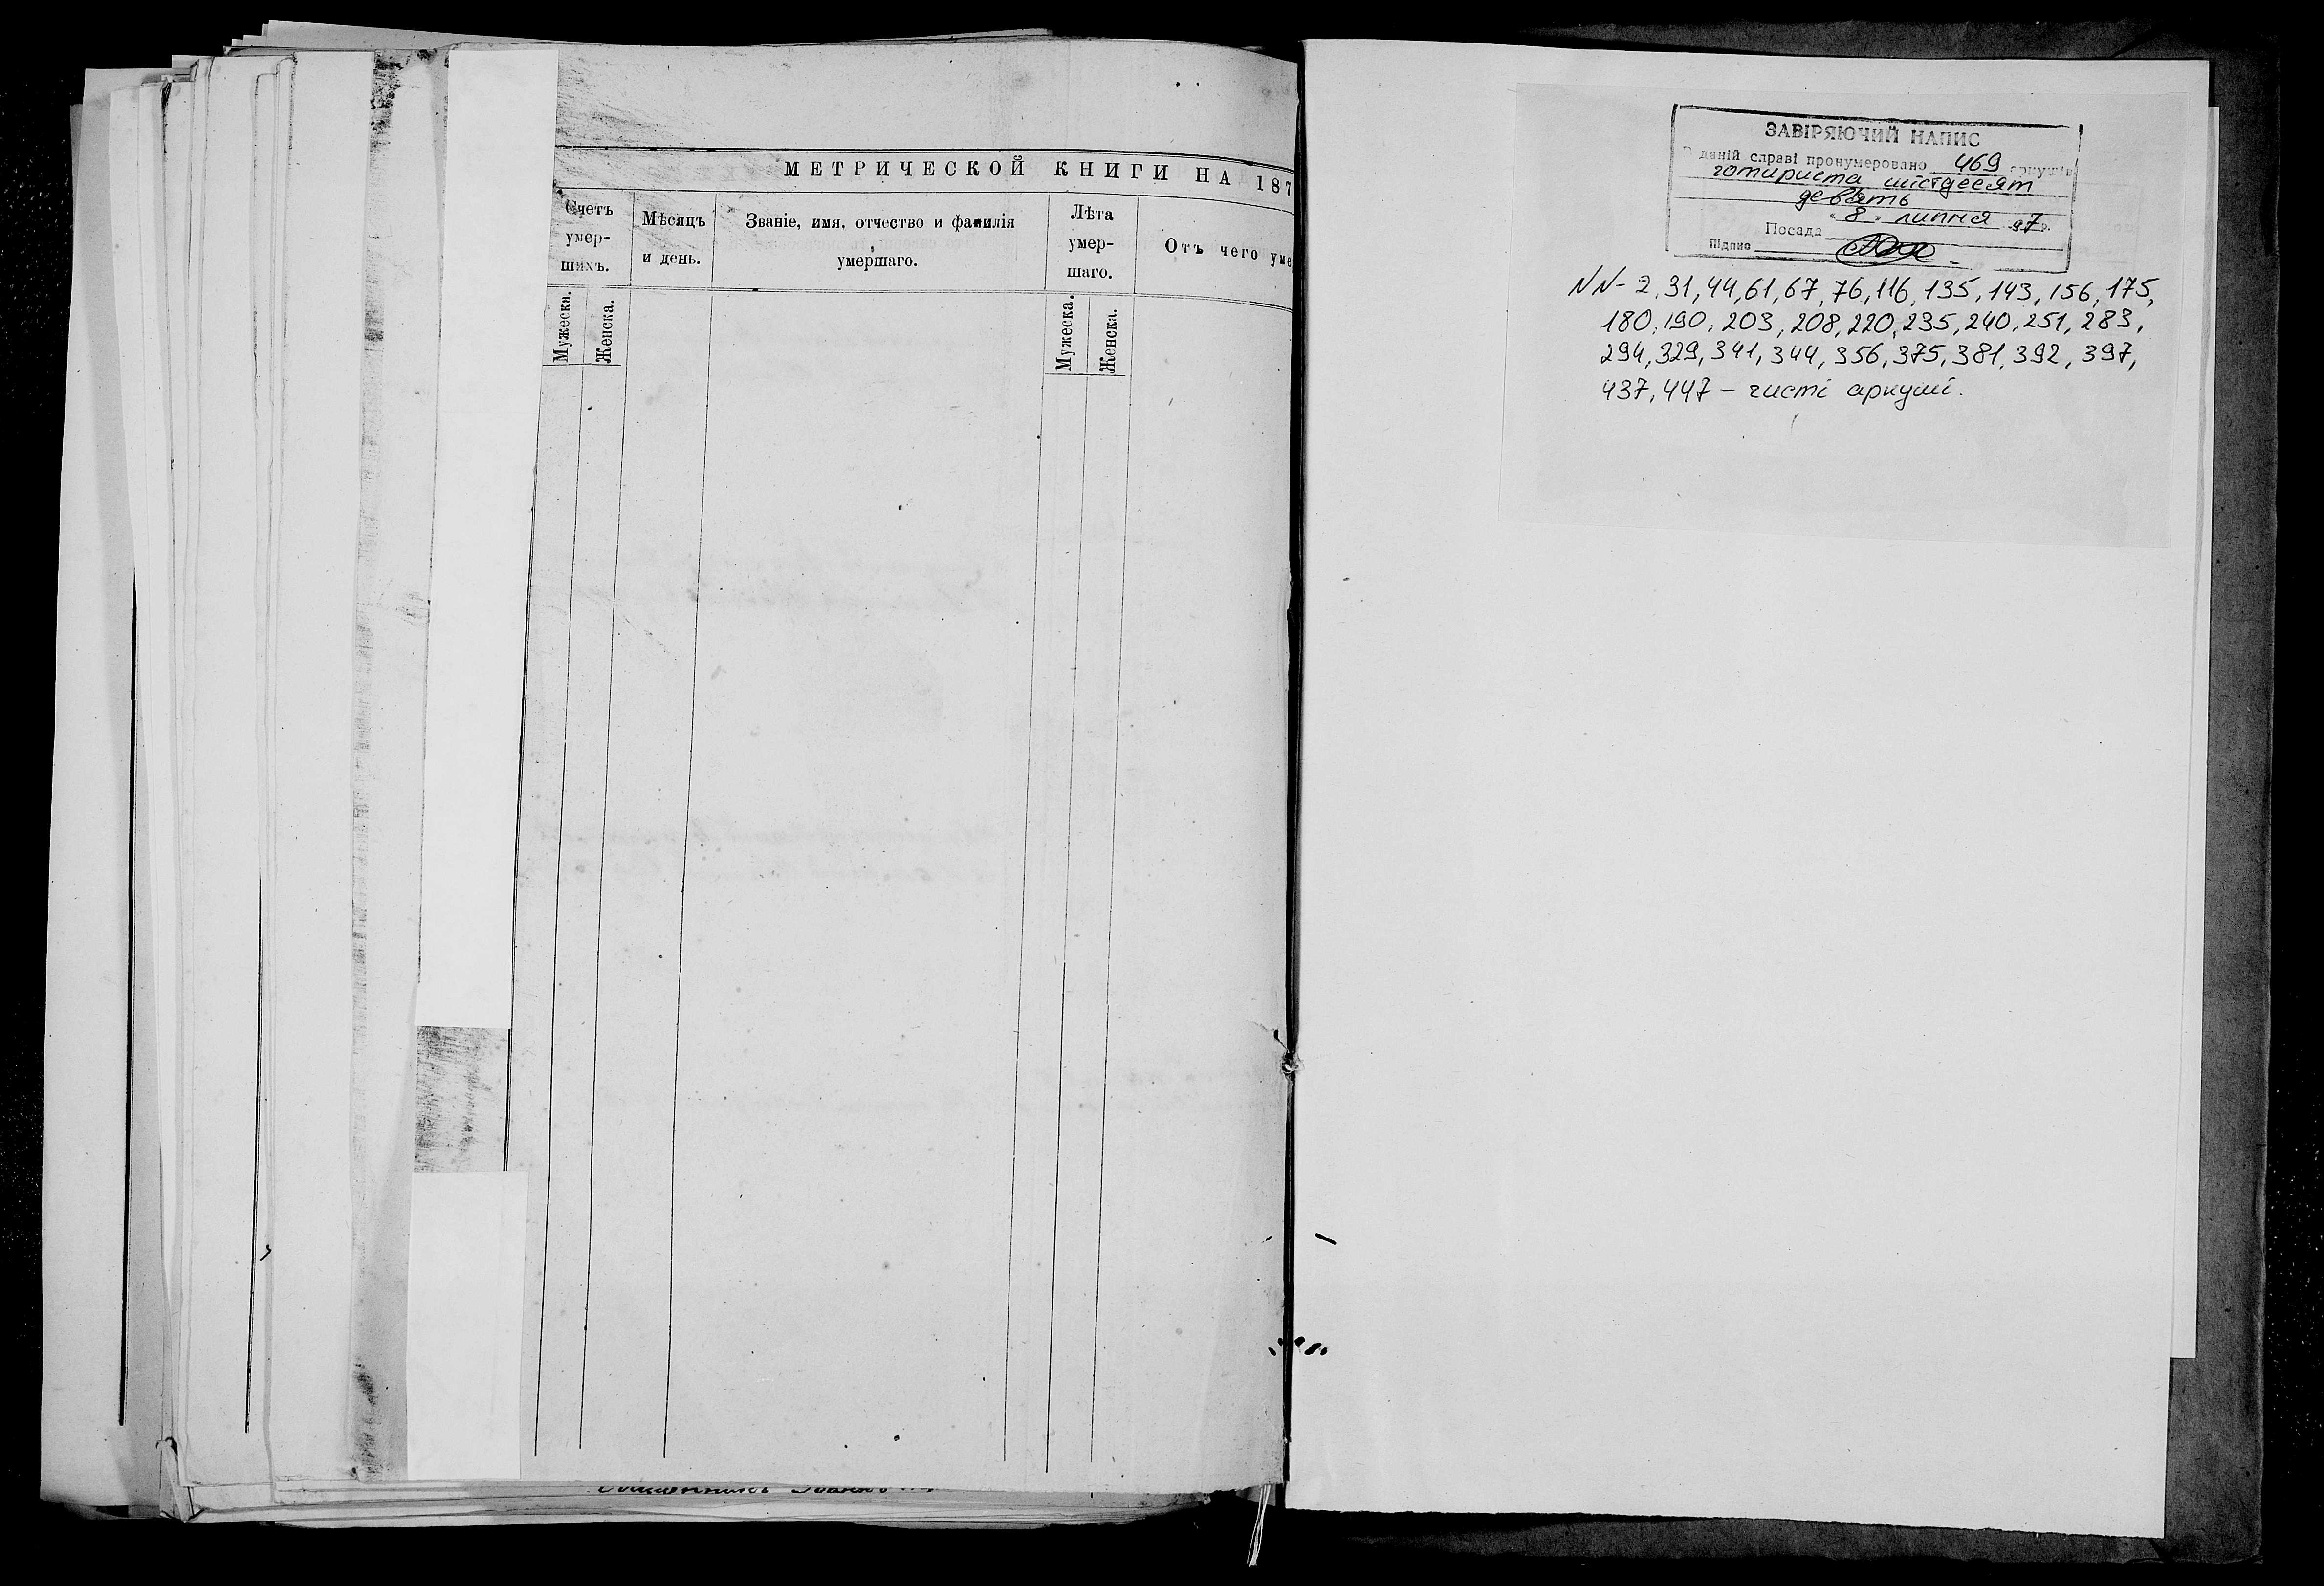 МЕТРИЧЕСКОЙ КНИГИ НА 187
Счетъ умер-шихъ.
Мѣсяцъ и день.
Званіе, имя, отчество и фамилія умершаго.
Лѣта умер-шаго.
Отъ чего уме
Мужеска.
Женска.
Мужеска.
Женска.
ЗАВІРЯЮЧИЙ НАПИС
В даній справі пронумеровано 469 аркушів
чотириста шістдесят
девять
"8" липня 97р.
Посада
Підпис
NN - 2, 31, 44, 61, 67, 76, 116, 135, 143, 156, 175,
180, 190, 203, 208, 220, 235, 240, 251, 283,
294, 329, 341, 344, 356, 375, 381, 392, 397,
437, 447 – чисті аркуші.